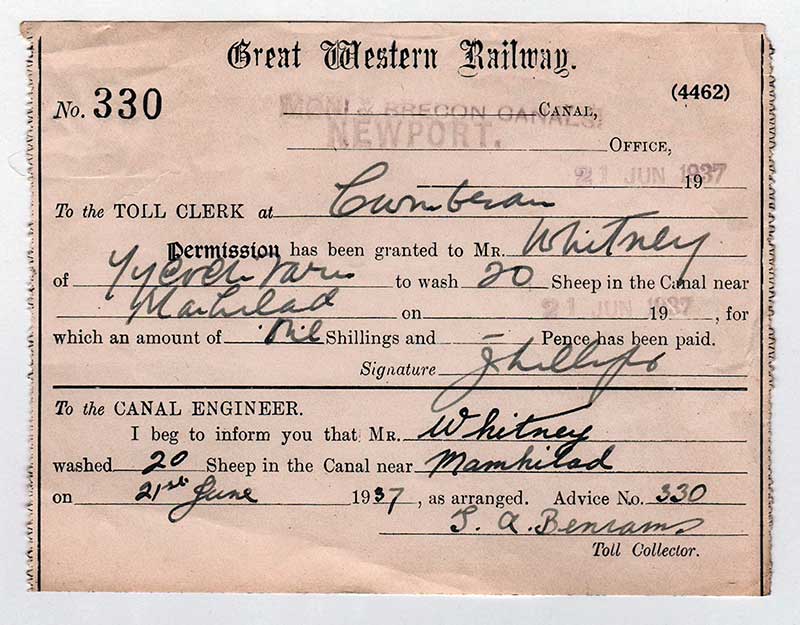 Great Western Railway.
(4462)
No. 330
MON: & BRECON CANALS: CANAL,
NEWPORT. OFFICE,
21 JUN 1937 19
To the TOLL CLERK at Cwmbran
Permission has been granted to MR. Whitney
of to wash 20 Sheep in the Canal near
Mamhilad on 21 JUN 1937 19 , for
which an amount of Nil Shillings and – Pence has been paid.
Signature
To the CANAL ENGINEER.
I beg to inform you that MR. Whitney
washed 20 Sheep in the Canal near Mamhilad
on 21st June 1937, as arranged. Advice No. 330
Toll Collector.